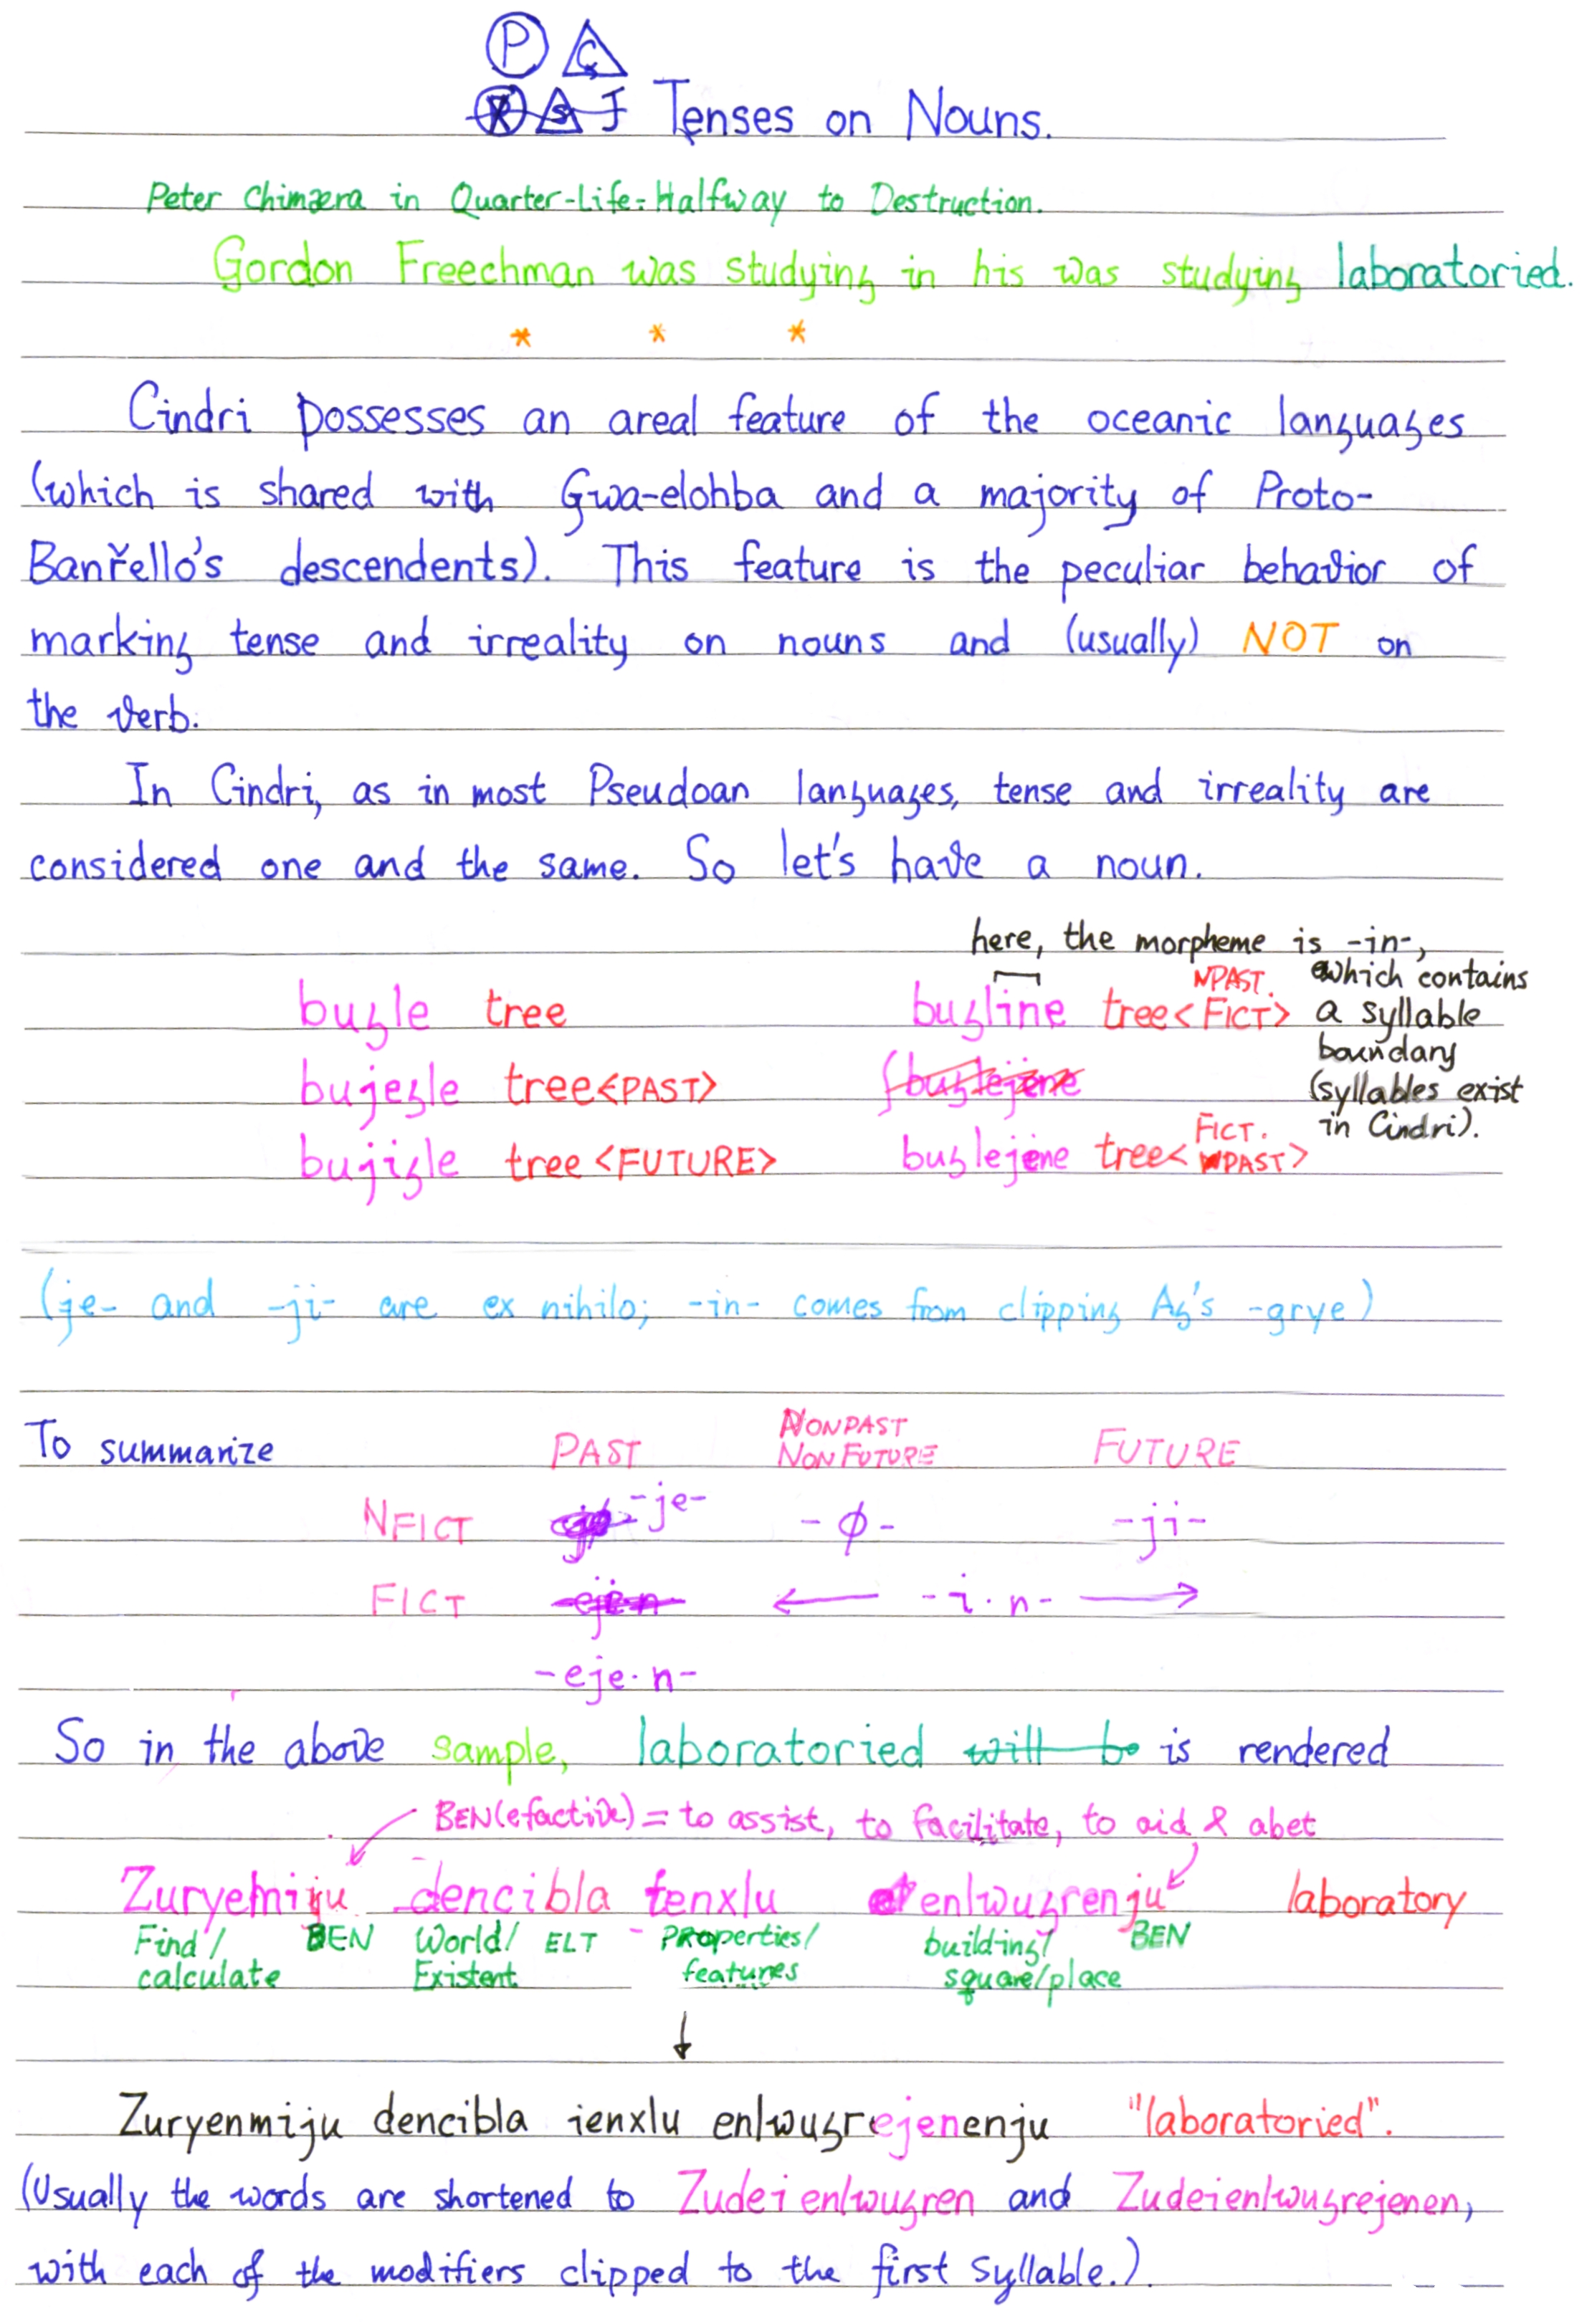 P Ç
J Tenses on Nouns.
Peter Chimæra in Quarter-Life: Halfway to Destruction.
Gordon Freechman was studying in his was studying laboratoried.
* * *
Cindri possesses an areal feature of the oceanic languages
(which is shared with Gwa-elohba and a majority of Proto-
Banřello's descendents). This feature is the peculiar behavior of
marking tense and irreality on nouns and (usually) NOT on
the verb.
In Cindri, as in most Pseudoan languages, tense and irreality are
considered one and the same. So let's have a noun.
here, the morpheme is -in-,
which contains
a syllable
boundary
(syllables exist
in Cindri).
bugle tree
bugline tree<NPAST. FICT>
bujegle tree<PAST>
buglejene
bujigle tree <FUTURE>
buglejene tree<FICT. PAST>
(je- and -ji- are ex nihilo; -in- comes from clipping Ag's -grye)
To summarize PAST NONPAST NONFUTURE FUTURE
NFICT -je- -ϕ- -ji-
FICT ejen ← -i·n- →
-eje·n-
So in the above sample, laboratoried will be is rendered
BEN(efactive) = to assist, to facilitate, to aid & abet
dencibla enlwugrenju laboratory
Find/ BEN World/ ELT Properties/ building/ BEN
calculate Existent features square/place
↓
Zuryenmiju dencibla ienxlu enlwugrejenenju "laboratoried".
(Usually the words are shortened to Zudeienlwugren and Zudeienlwugrejenen,
with each of the modifiers clipped to the first syllable.)